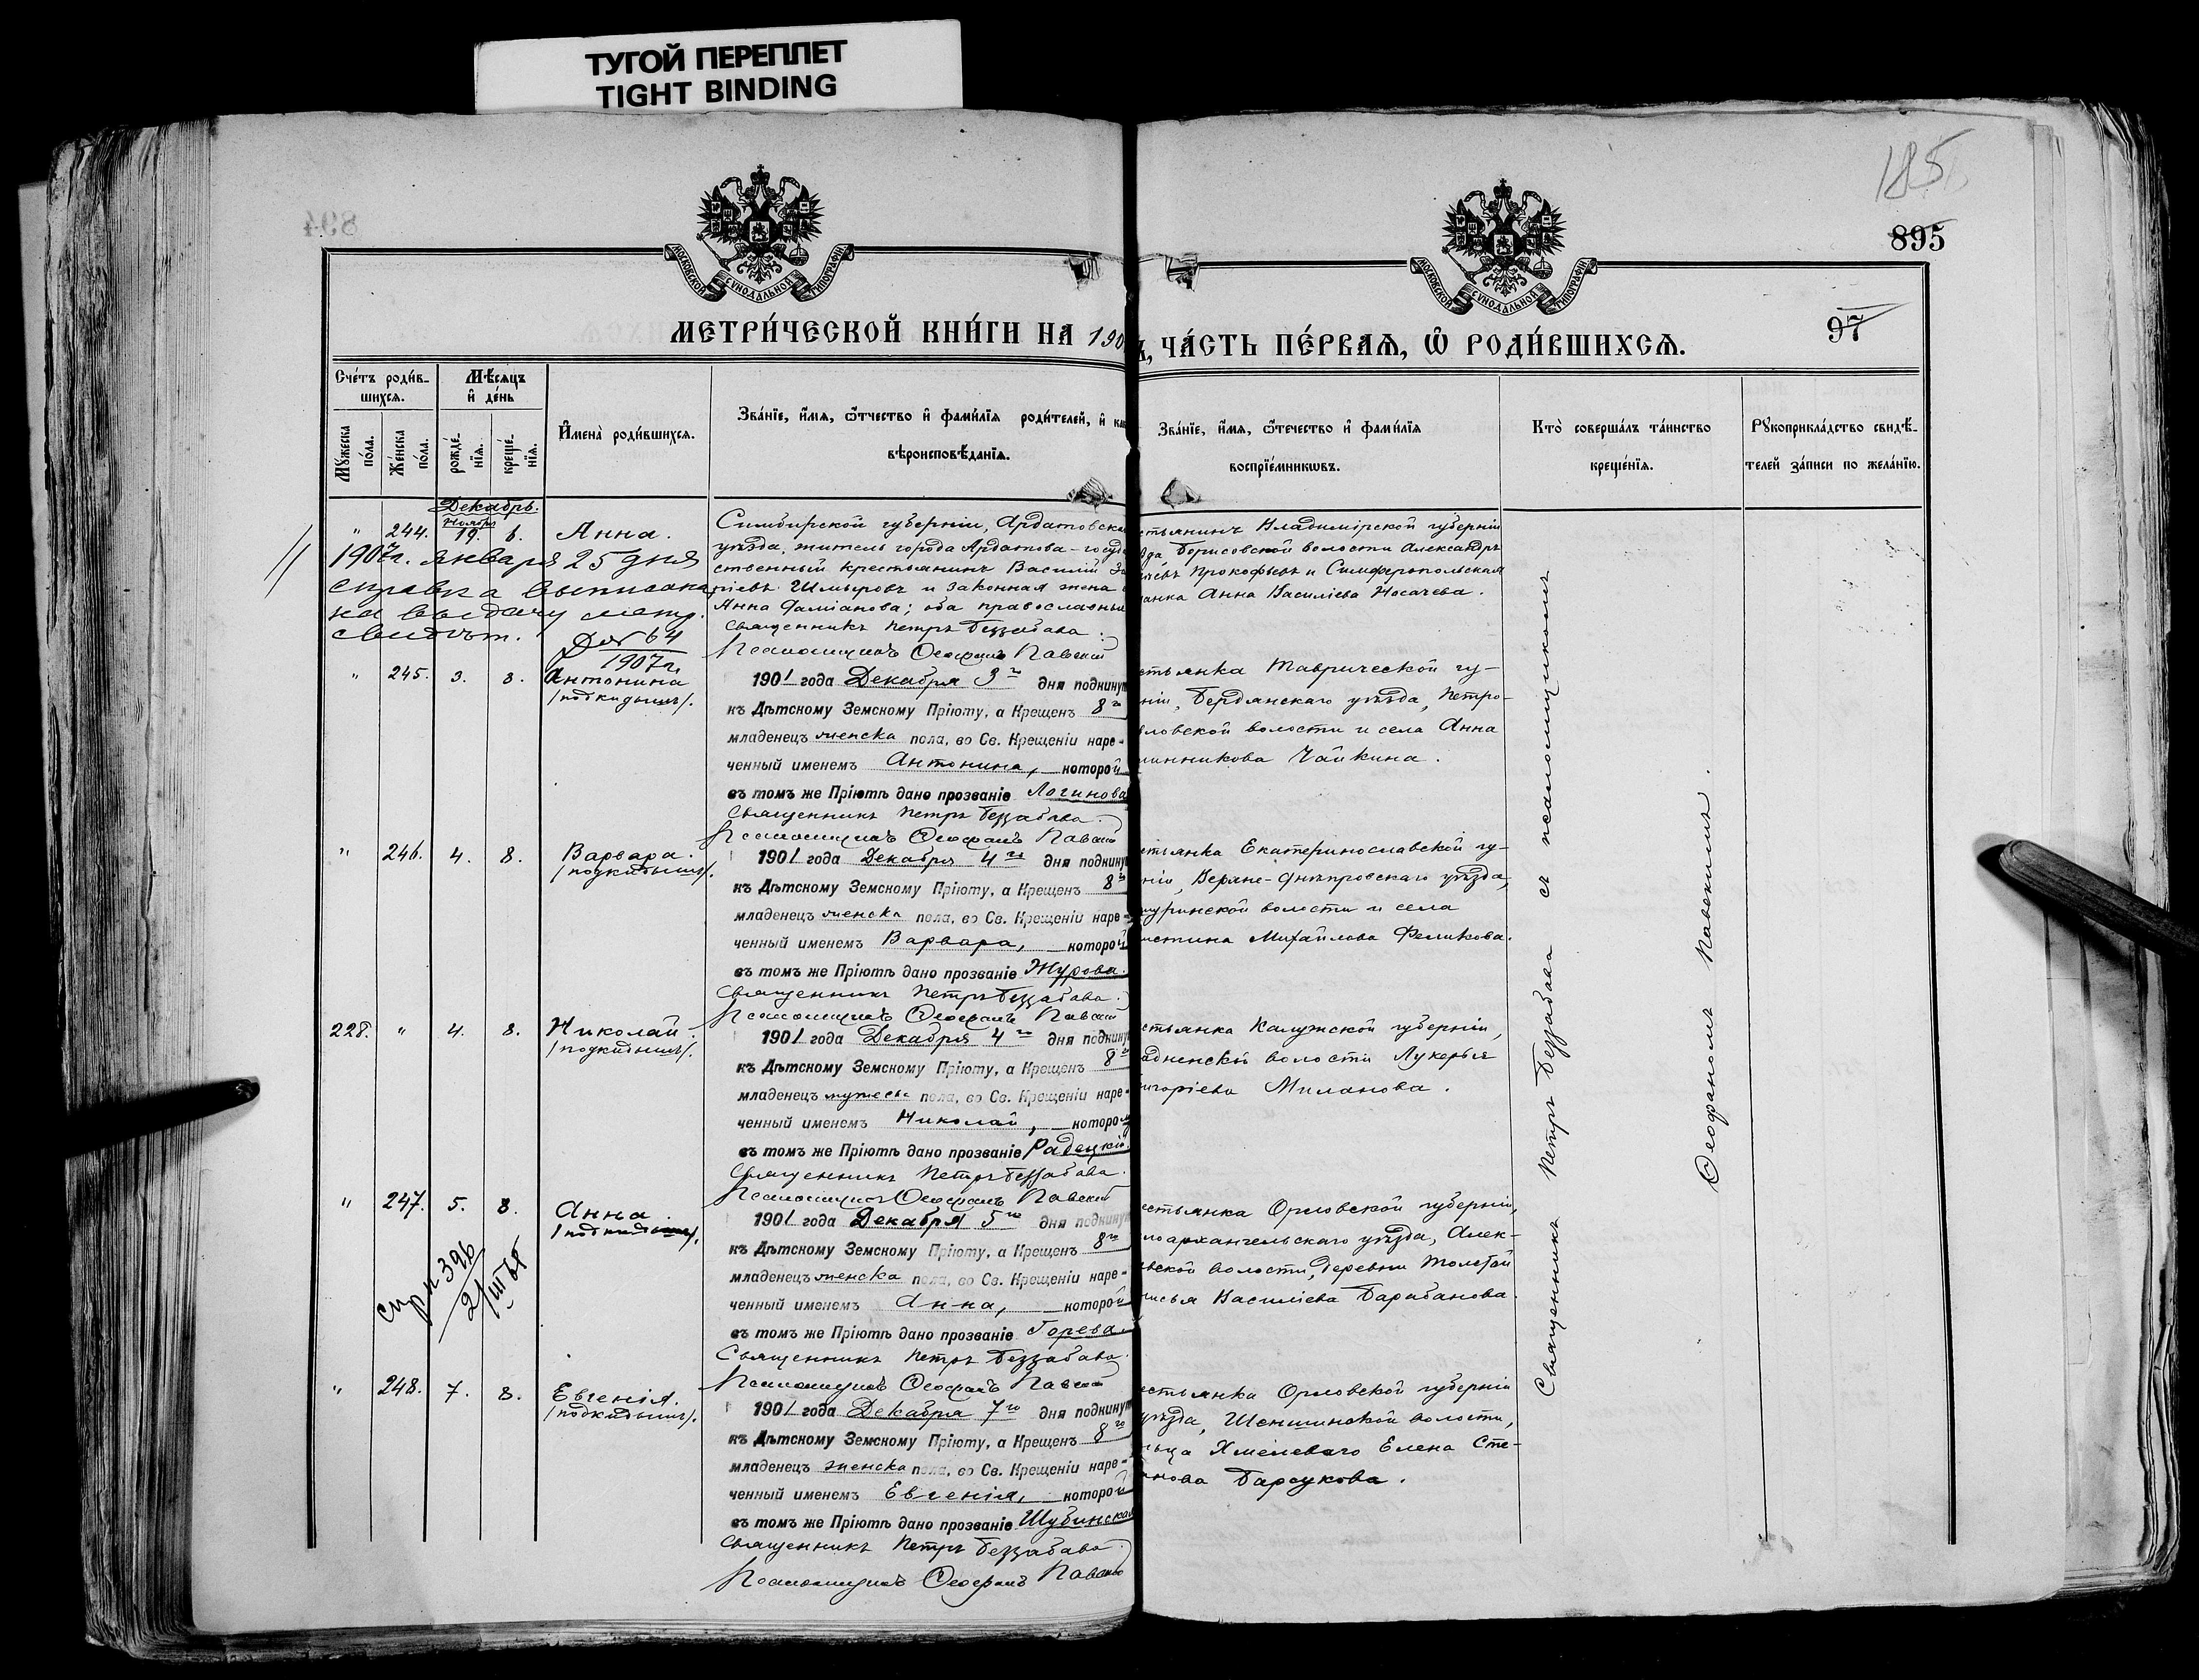 ТУГОЙ ПЕРЕПЛЕТ
TIGHT BINDING
185
894
895
97
МОСКОВСКОЙ СѴНОДАЛЬНОЙ ТИПОГРАФІИ
МОСКОВСКОЙ СѴНОДАЛЬНОЙ ТИПОГРАФІИ
МЕТРИ́ЧЕСКОЙ КНИ́ГИ НА 190
ЧА́СТЬ ПЕ́РВАѦ, Ѿ РОДИ́ВШИХСѦ.
Сче́тъ роди́в-
шихся.
Мꙋжеска по́ла.
Же́нска по́ла.
Мѣ́сяцъ
и҆ де́нь
рожде́нїя.
креще́нїя.
И҆мена̀ роди́вшихся.
Зва́нїе, и҆́мя, ѻ҆́тчество и҆ фами́лїя роди́телей, и҆ как
вѣроисповѣ́данїя.
Зва́нїе, и҆́мя, ѻ҆́течество и҆ фами́лїя
воспрїе́мниковъ.
Кто̀ соверша́лъ та́инство
креще́нїя.
Рꙋкоприкла́дство свидѣ́-
телей за́писи по жела́нїю.
Декабрь.
Ноябрь
" 244. 19. 6. Анна.
Симбирской губерніи, Ардатовска
уѣзда, житель города Ардатова - госуд
ственный крестьянинъ Василій
Шмыровъ и законная жена
Анна Даміанова; оба православны
Священникъ Петръ Беззабава.
Псаломщикъ Ѳеофанъ Павскій
стьянинъ Владимірской губерніи
да Борисовской волости Александръ
Прокофьевъ и Симферопольская
анка Анна Василіева Носачева.
1907г. января 25 дня
справка выписана
на выдачу метр.
свидѣт.
Дѣл 64
1907г.
" 245. 3. 8. Антонина
/подкидышъ/.
1901 года Декабря 3го дня подкинут
къ Дѣтскому Земскому Пріюту, а Крещенъ 8го
младенецъ женска пола, во Св. Крещеніи наре-
ченный именемъ Антонина, которой
въ томъ же Пріютѣ дано прозваніе Логинова
Священникъ Петръ Беззабава.
Псаломщикъ Ѳеофанъ Павскій
стьянка Таврической гу-
ніи, Бердянскаго уѣзда, Петро-
ловской волости и села Анна
Чайкина.
" 246. 4. 8. Варвара.
/подкидышъ/.
1901 года Декабря 4го дня подкинут
къ Дѣтскому Земскому Пріюту, а Крещенъ 8го
младенецъ женска пола, во Св. Крещеніи наре-
ченный именемъ Варвара, которой
въ томъ же Пріютѣ дано прозваніе Журова.
Священникъ Петръ Беззабава.
Псаломщикъ Ѳеофанъ Павскій
стьянка Екатеринославской гу-
ніи, Верхне-Днѣпровскаго уѣзда,
волости и села
Михайлова
228. " 4. 8. Николай.
/подкидышъ/.
1901 года Декабря 4го дня подкину
къ Дѣтскому Земскому Пріюту, а Крещенъ 8го
младенецъ мужеска пола, во Св. Крещеніи наре-
ченный именемъ Николай, которо
въ томъ же Пріютѣ дано прозваніе Радецкій.
Священникъ Петръ Беззабава.
Псаломщикъ Ѳеофанъ Павскій
стьянка Калужской губерніи,
волости Лукерья
горіева Миланова.
" 247. 5. 8. Анна.
/подкидышъ/.
Спр № 396
2/III 65
1901 года Декабря 5го дня подкинут
къ Дѣтскому Земскому Пріюту, а Крещенъ 8го
младенецъ женска пола, во Св. Крещеніи наре-
ченный именемъ Анна, которой
въ томъ же Пріютѣ дано прозваніе Горева.
Священникъ Петръ Беззабава.
Псаломщикъ Ѳеофанъ Павскій
естьянка Орловской губерніи,
лоархангельскаго уѣзда, Алек-
вской волости, деревни Толстой
Василіева Барабанова.
" 248. 7. 8. Евгенія.
/подкидышъ/.
1901 года Декабря 7го дня подкинут
къ Дѣтскому Земскому Пріюту, а Крещенъ 8го
младенецъ женска пола, во Св. Крещеніи наре-
ченный именемъ Евгенія, которой
въ томъ же Пріютѣ дано прозваніе Шубинская
Священникъ Петръ Беззабава.
Псаломщикъ Ѳеофанъ Павскій
естьянка Орловской губерніи
уѣзда, Шеншинской волости,
Хмелеваго Елена Сте-
нова Барсукова.
Священникъ Петръ Беззабава съ псаломщикомъ
Ѳеофаномъ Павскимъ.